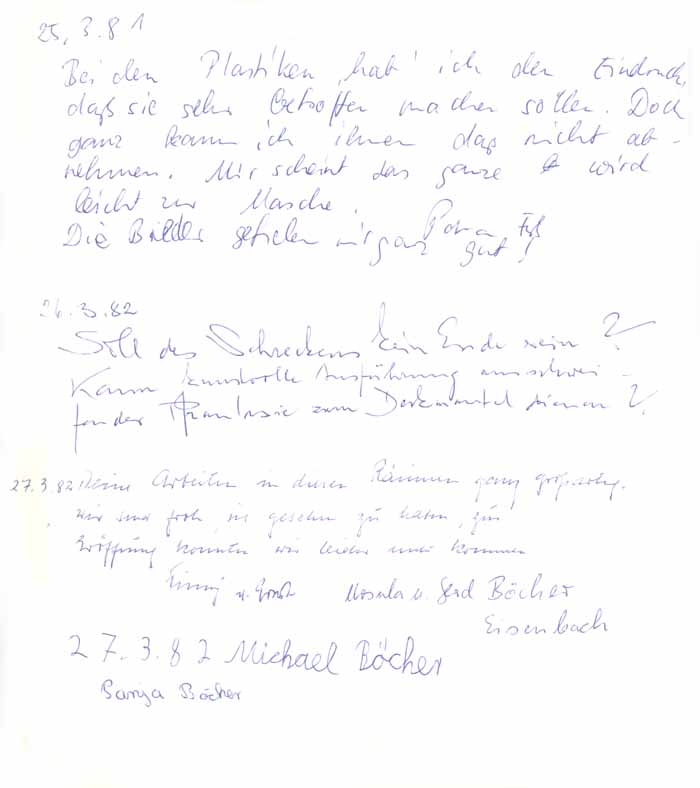 25.3.81
Bei den Plastiken hab' ich den Eindruck,
daß sie sehr betroffen machen sollen. Doch
ganz kann ich ihnen das nicht ab-
nehmen. Mir scheint das ganze wird
leicht zur Masche.
Die Bilder gefielen mir ganz gut!
26.3.82
Soll des Schreckens kein Ende sein?
Kann kunstvolle Ausführung ausschwei-
fender Phantasie zum Denkmittel dienen?
27.3.82 Deine Arbeiten in diesen Räumen ganz großartig.
Wir sind froh, sie gesehn zu haben, zur
Eröffnung konnten wir leider nicht kommen
u. Ernst u. Gerd Böcher
Eisenbach
27.3.82 Michael Böcher
Böcher